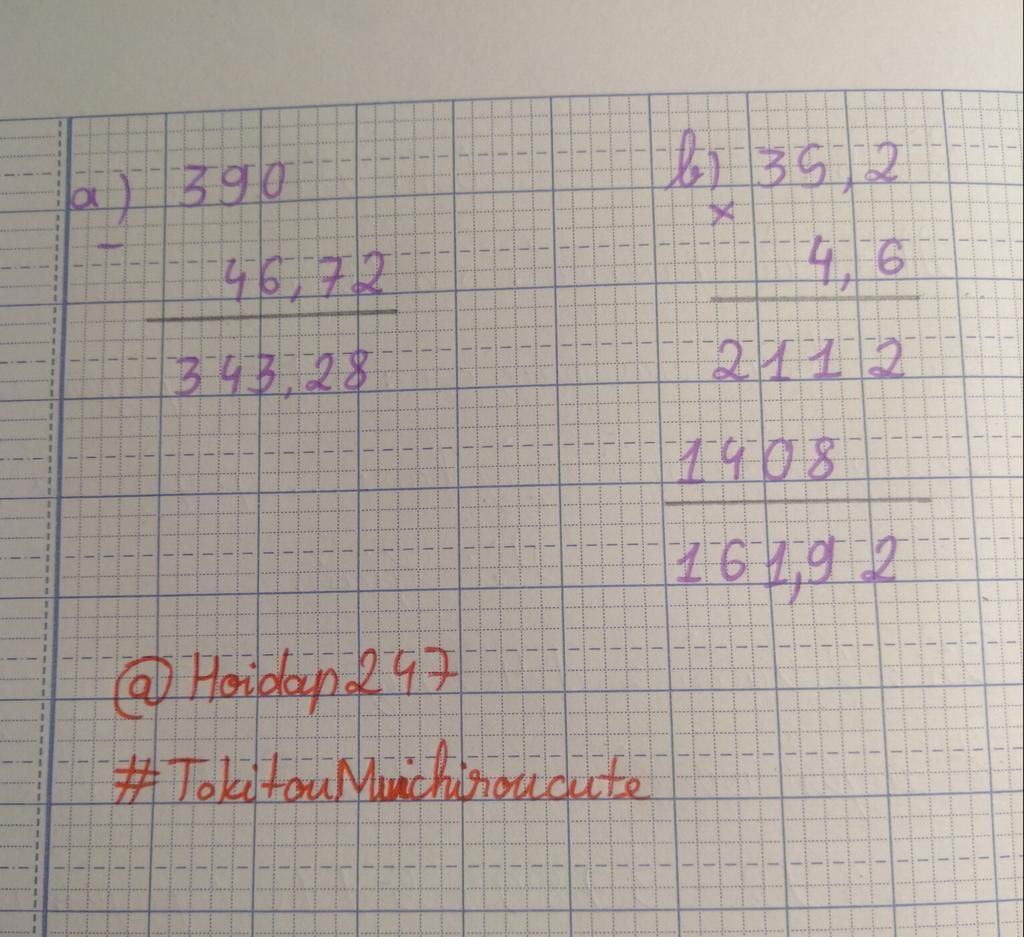 a) 390
-
46,72
343,28
b) 35,2
×
4,6
2112
1408
161,92
@Hoidap247
#TokitouMuichiroucute